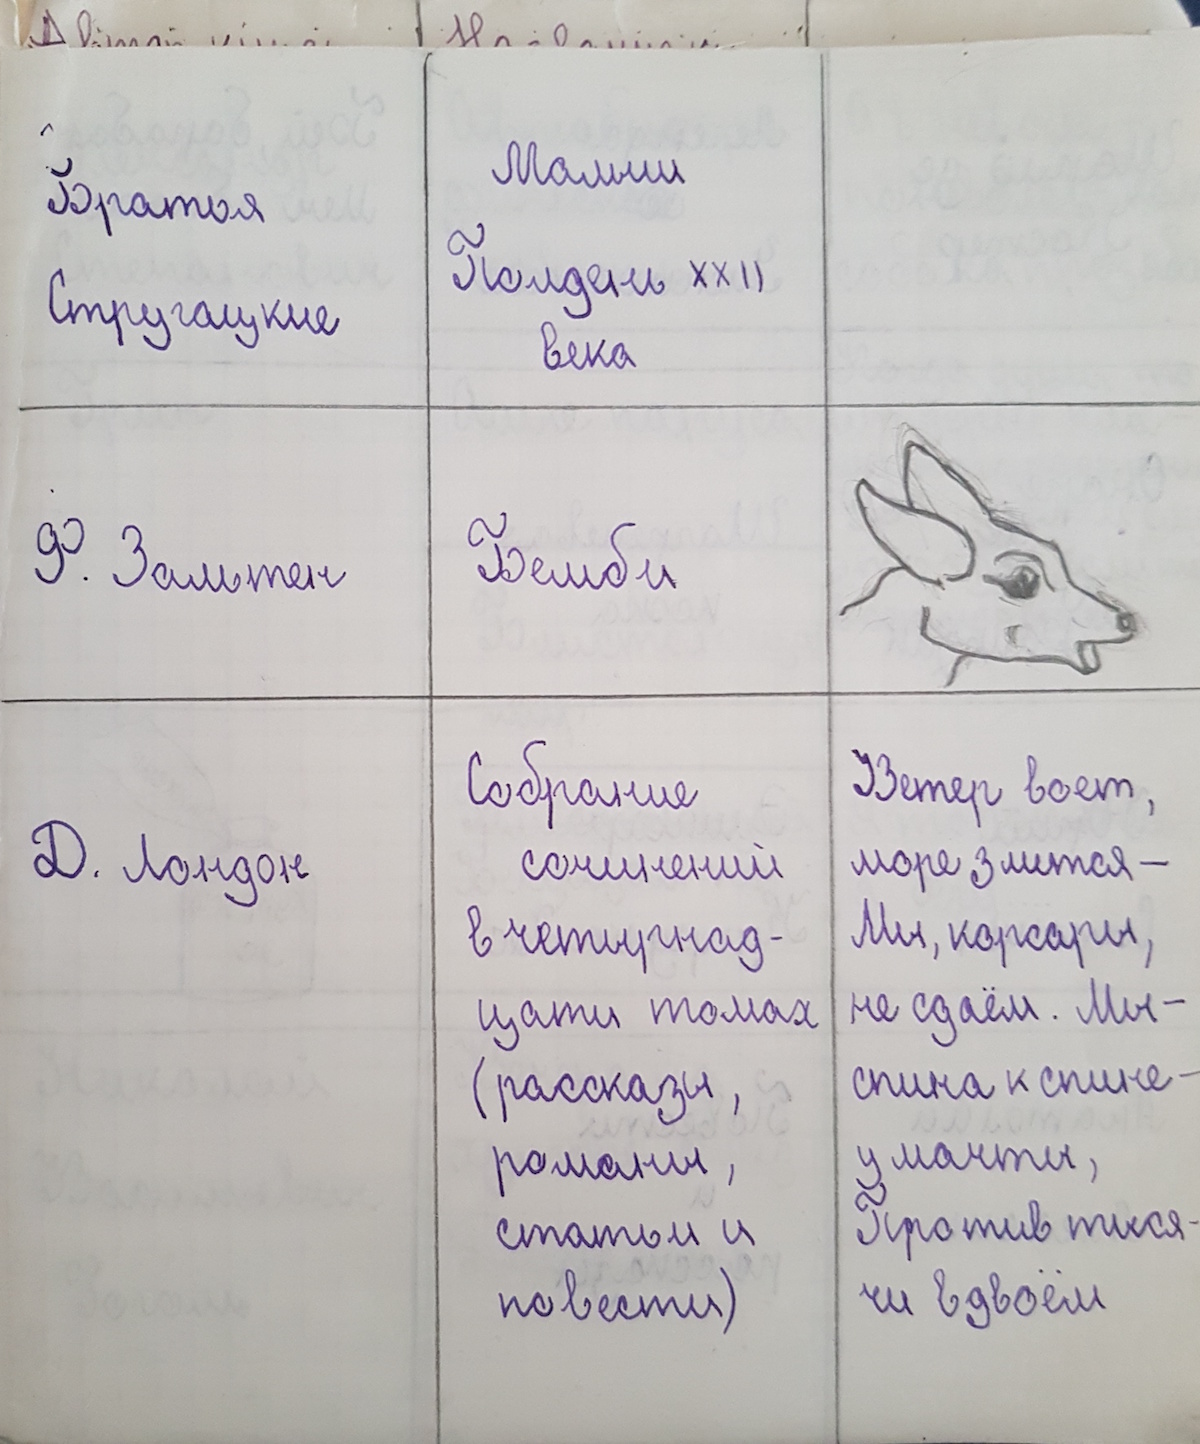 Братья
Стругацкие
Малыш
Полдень XXII
века
Ф. Зальтен
Бемби
Д. Лондон
Собрание
сочинений
в четырнад-
цати томах
(рассказы,
романы,
статьи и
повести)
Ветер воет,
море злится—
Мы, корсары,
не сдаём. Мы—
спина к спине—
у мачты,
Против тыся-
чи вдвоём